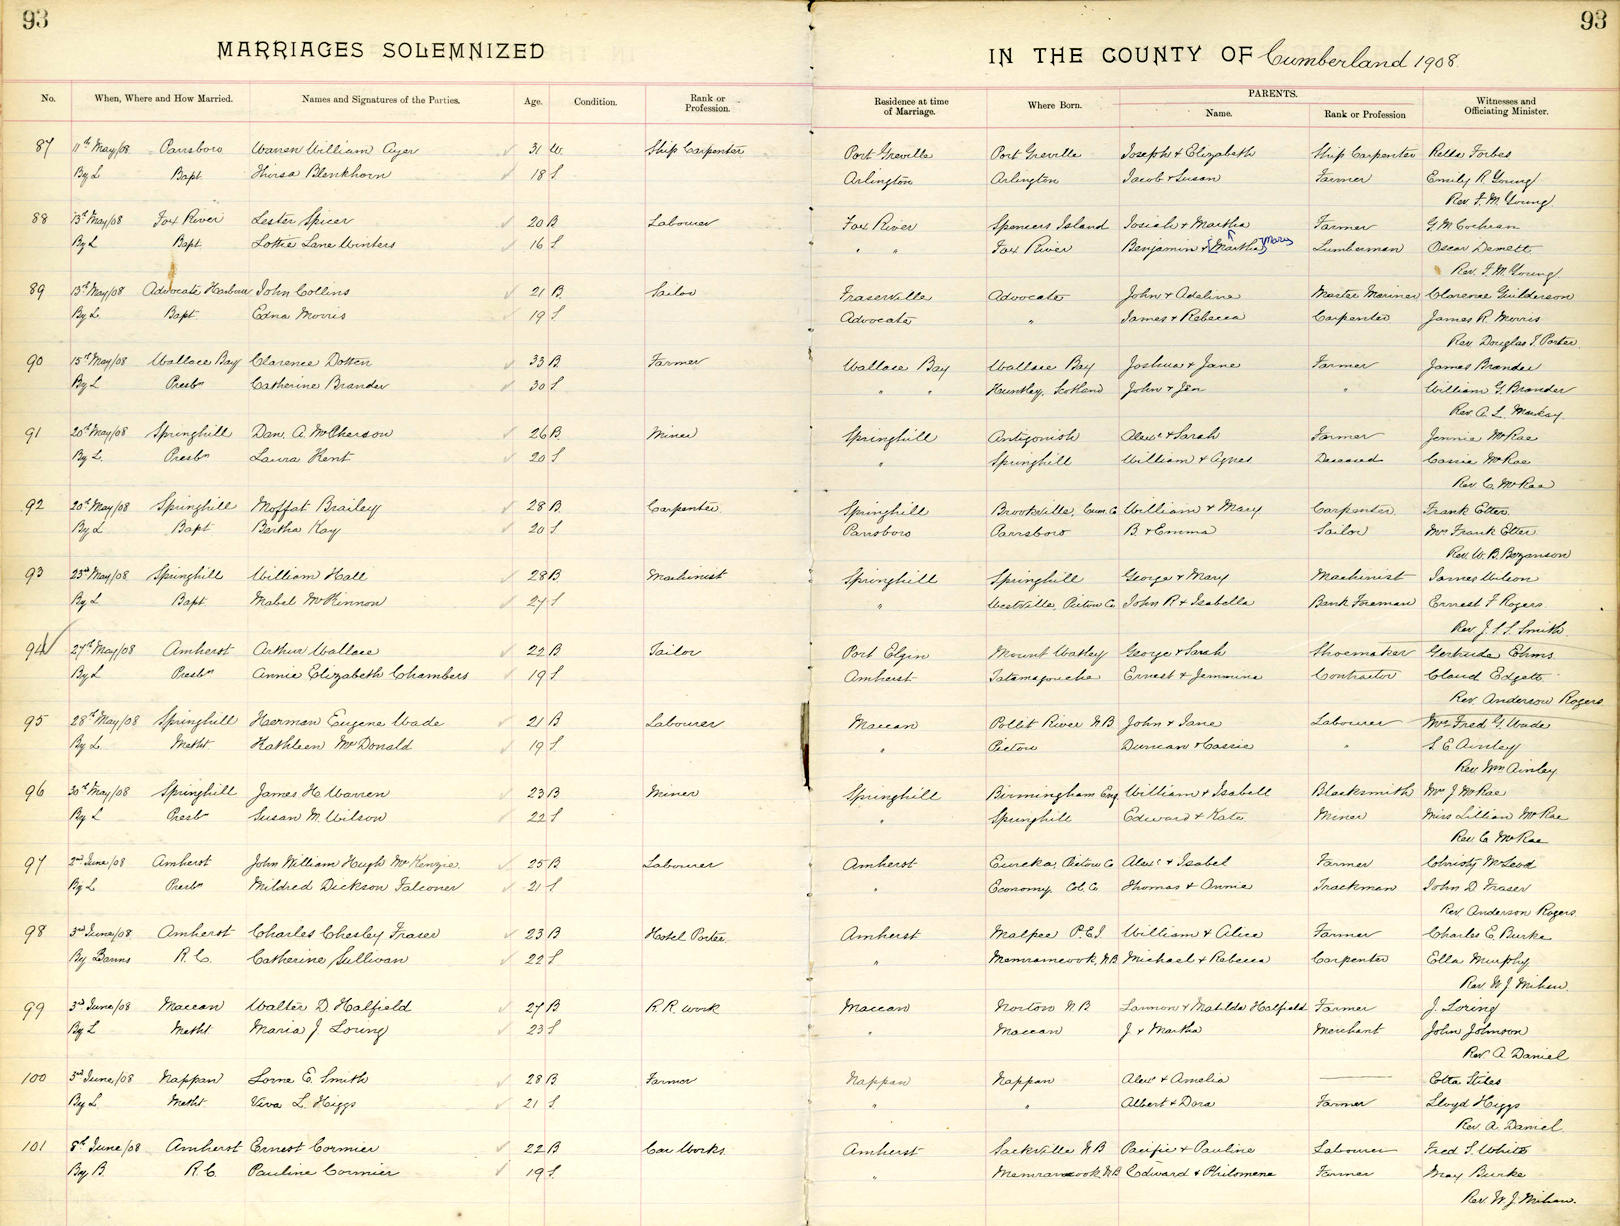 93
93
MARRIAGES SOLEMNIZED
IN THE COUNTY OF Cumberland 1908.
No. When, Where and How Married. Names and Signatures of the Parties. Age. Condition. Rank or Profession. Residence at time of Marriage. Where Born. PARENTS. Name. Rank or Profession Witnesses and Officiating Minister.
87 11th May/08 Parrsboro Warren William Ayer 31 W. Ship Carpenter Port Greville Port Greville Joseph & Elizabeth Ship Carpenter Retta Forbes
By L Bapt Thirsa Blenkhorn 18 S. Arlington Arlington Jacob & Susan Farmer Emily R. Young
Rev. F. M. Young
88 13th May/08 Fox River Lester Spicer 20 B Labourer Fox River Spencers Island Josiah & Martha Farmer G. M. Cochran
By L Bapt Lottie Lane Winters 16 S. " " Fox River Benjamin & (Martha) Mary Lumberman Oscar Demett
Rev. F. M. Young
89 13th May/08 Advocate Harbour John Collins 21 B. Sailor Fraserville Advocate John & Adeline Master Mariner Clarence Guilderson
By L. Bapt Edna Morris 19 S. Advocate " James & Rebecca Carpenter James R. Morris
Rev. Douglas J. Porter.
90 15th May/08 Wallace Bay Clarence Dotten 33 B. Farmer Wallace Bay Wallace Bay Joshua & Jane Farmer James Brander
By L Presbn Catherine Brander 30 S. " " Huntley, Scotland John & Jen " William G. Brander
Rev. A. L. Mackay.
91 20th May/08 Springhill Dan. A. McPherson 26 B. Miner Springhill Antigonish Alexr & Sarah Farmer Jennie McRae
By L. Presbn Laura Kent 20 S " Springhill William & Agnes Deceased Cassie McRae
Rev. C. McRae
92 20th May/08 Springhill Moffat Brailey 28 B Carpenter Springhill Brookville, Cum. C. William & Mary Carpenter Frank Etter
By L Bapt Bertha Kay 20 S. Parrsboro Parrsboro B. & Emma Sailor Mrs Frank Etter
Rev. W. B. Bezanson
93 23rd May/08 Springhill William Hall 28 B Machinist Springhill Springhill George & Mary Machinist James Wilson
By L Bapt Mabel McKinnon 27 S. " Westville, Pictou C. John R & Isabella Bank Foreman Ernest F Rogers
Rev. J. S. S. Smith.
94 27th May/08 Amherst Arthur Wallace 22 B Tailor Port Elgin Mount Watley George & Sarah Shoemaker Gertrude Ehms.
By L Presbn Annie Elizabeth Chambers 19 S. Amherst Tatamagouche Ernest & Jemmina Contractor Claud Edgett
Rev. Anderson Rogers
95 28th May/08 Springhill Herman Eugene Wade 21 B Labourer Maccan Pollet River N.B. John & Jane Labourer Mrs Fred G. Wade
By L. Metht Kathleen McDonald 19 S. " Pictou Duncan & Cassie " S. E. Ainley
Rev. Wm Ainley
96 30th May/08 Springhill James H. Warren 23 B Miner Springhill Birmingham Eng. William & Isabell Blacksmith Mrs J McRae
By L Presbn Susan M. Wilson 22 S. " Springhill Edward & Kate Miner Miss Lillian McRae
Rev. C. McRae
97 2nd June/08 Amherst John William Hugh McKenzie 25 B Labourer Amherst Eureka, Pictou C Alexr & Isabel Farmer Christy McLeod
By L. Presbn Mildred Dickson Falconer 21 S. " Economy, Col. C. Thomas & Annie Trackman John D Fraser
Rev. Anderson Rogers.
98 3rd June/08 Amherst Charles Chesley Fraser 23 B Hotel Porter. Amherst Malpec P.E.I. William & Alice Farmer Charles E. Burke
By Banns R. C. Catherine Sullivan 22 S. " Memramcook, N.B. Michael & Rebecca Carpenter Ella Murphy
Rev. W J. Mihan.
99 3rd June/08 Maccan Walter D Halfield 27 B R. R. Work Maccan Norton N B Lannon & Matilda Halfield Farmer J. Loring
By L Metht Maria J. Loring 23 S. " Maccan J. & Martha Merchant John Johnson
Rev. A. Daniel
100 3rd June/08 Nappan Lorne E. Smith 28 B Farmer Nappan Nappan Alexr & Amelia Etta Stiles
By L Metht. Viva L. Higgs 21 S. " " Albert & Dora Farmer Lloyd Higgs
Rev. A. Daniel.
101 8th June/08 Amherst Ernest Cormier 22 B Car Works. Amherst Sackville N.B Pacific & Pauline Labourer Fred S. White
By B. R. C. Pauline Cormier 19 S. " Memramcook N.B Edward & Philomene Farmer May Burke
Rev. W. J. Mihan.